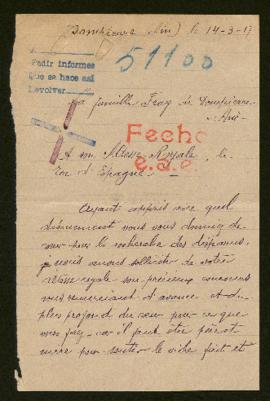 Dompierre (Ain) le 14-3-17
51100
Pedir informes
Que se hace así
Devolver
La famille Fray de Dompierre
Ain
Fecho
A son Altesse Royale, le
Roi d'Espagne
Ayant appris avec quel
dévouement vous vous donnez de
cœur pour la recherche des disparus,
je viens vous solliciter de votre
Altesse royale son précieux concours
vous remerciant d'avance et du
plus profond du cœur pour ce que
vous ferez, car il peut être père et
mère pour